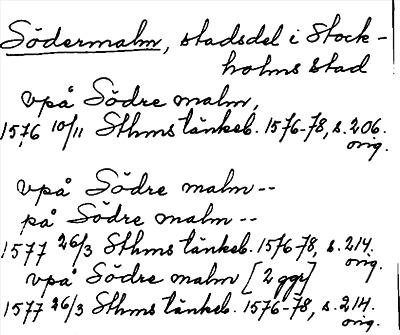 Södermalm, stadsdel i Stock-
holms stad
vpå Södre malm,
1576 10/11 Sthms tänkeb. 1576-78, s. 206.
orig.
vpå Södre malm --
på Södre malm --
1577 26/3 Sthms tänkeb. 1576-78, s. 214.
orig.
vpå Södre malm [2 ggr]
1577 26/3 Sthms tänkeb. 1576-78, s. 214.
orig.